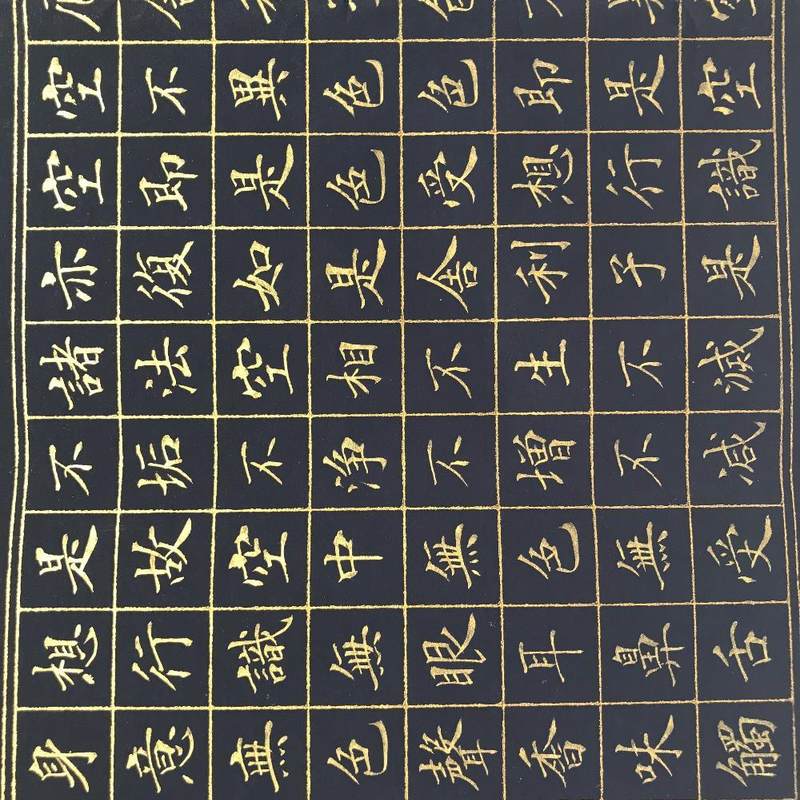 空不異色色即是空
空即是色受想行識
亦復如是舍利子是
諸法空相不生不滅
不垢不淨不增不減
是故空中無色無受
想行識無眼耳鼻舌
身意無色聲香味觸